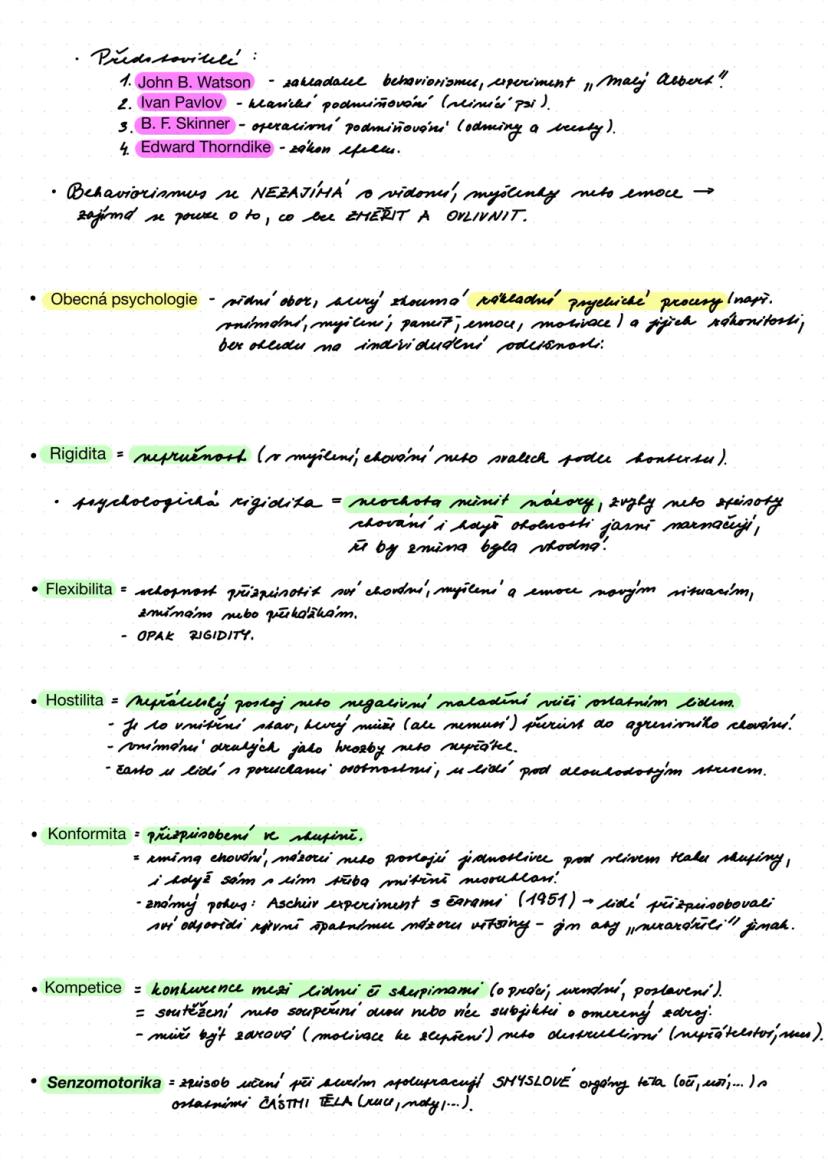 • Představitelé :
1. John B. Watson - zakladatel behaviorismu, experiment „Malý Albert“.
2. Ivan Pavlov - klasické podmiňování (slinící psi).
3. B. F. Skinner - operativní podmiňování (odměny a tresty).
4. Edward Thorndike - zákon efektu.
• Behaviorismus se NEZAJÍMÁ o vědomí, myšlenky nebo emoce →
zajímá se pouze o to, co lze ZMĚŘIT A OVLIVNIT.
• Obecná psychologie - vědní obor, který zkoumá základní psychické procesy (např.
vnímání, myšlení, paměť, emoce, motivace) a jejich zákonitosti,
bez ohledu na individuální odlišnosti.
• Rigidita = nepružnost (v myšlení, chování nebo svalech podle kontextu).
• psychologická rigidita = neochota měnit názory, zvyky nebo způsoby
chování i když okolnosti jasně naznačují,
že by změna byla vhodná.
• Flexibilita = schopnost přizpůsobit své chování, myšlení a emoce novým situacím,
změnám nebo překážkám.
- OPAK RIGIDITY.
• Hostilita = nepřátelský postoj nebo negativní naladění vůči ostatním lidem.
- Je to vnitřní stav, který může (ale nemusí) přerůst do agresivního chování.
- vnímání druhých jako hrozby nebo nepřátel.
- často u lidí s poruchami osobnostmi, u lidí pod dlouhodobým stresem.
• Konformita = přizpůsobení ve skupině.
= změna chování, názorů nebo postojů jednotlivce pod vlivem tlaku skupiny,
i když sám s tím třeba vnitřně nesouhlasí.
- známý pokus: Aschův experiment s čarami (1951) → lidé přizpůsobovali
své odpovědi zjevně špatnému názoru většiny - jen aby „nevyčnívali“ jinak.
• Kompetice = konkurence mezi lidmi či skupinami (o práci, uznání, postavení).
= soutěžení nebo soupeření dvou nebo více subjektů o omezený zdroj.
- může být zdravá (motivace ke zlepšení) nebo destruktivní (nepřátelství, stres).
• Senzomotorika = způsob učení při kterém spolupracují SMYSLOVÉ orgány těla (oči, uši,...) s
ostatními ČÁSTMI TĚLA (ruce, nohy,...).